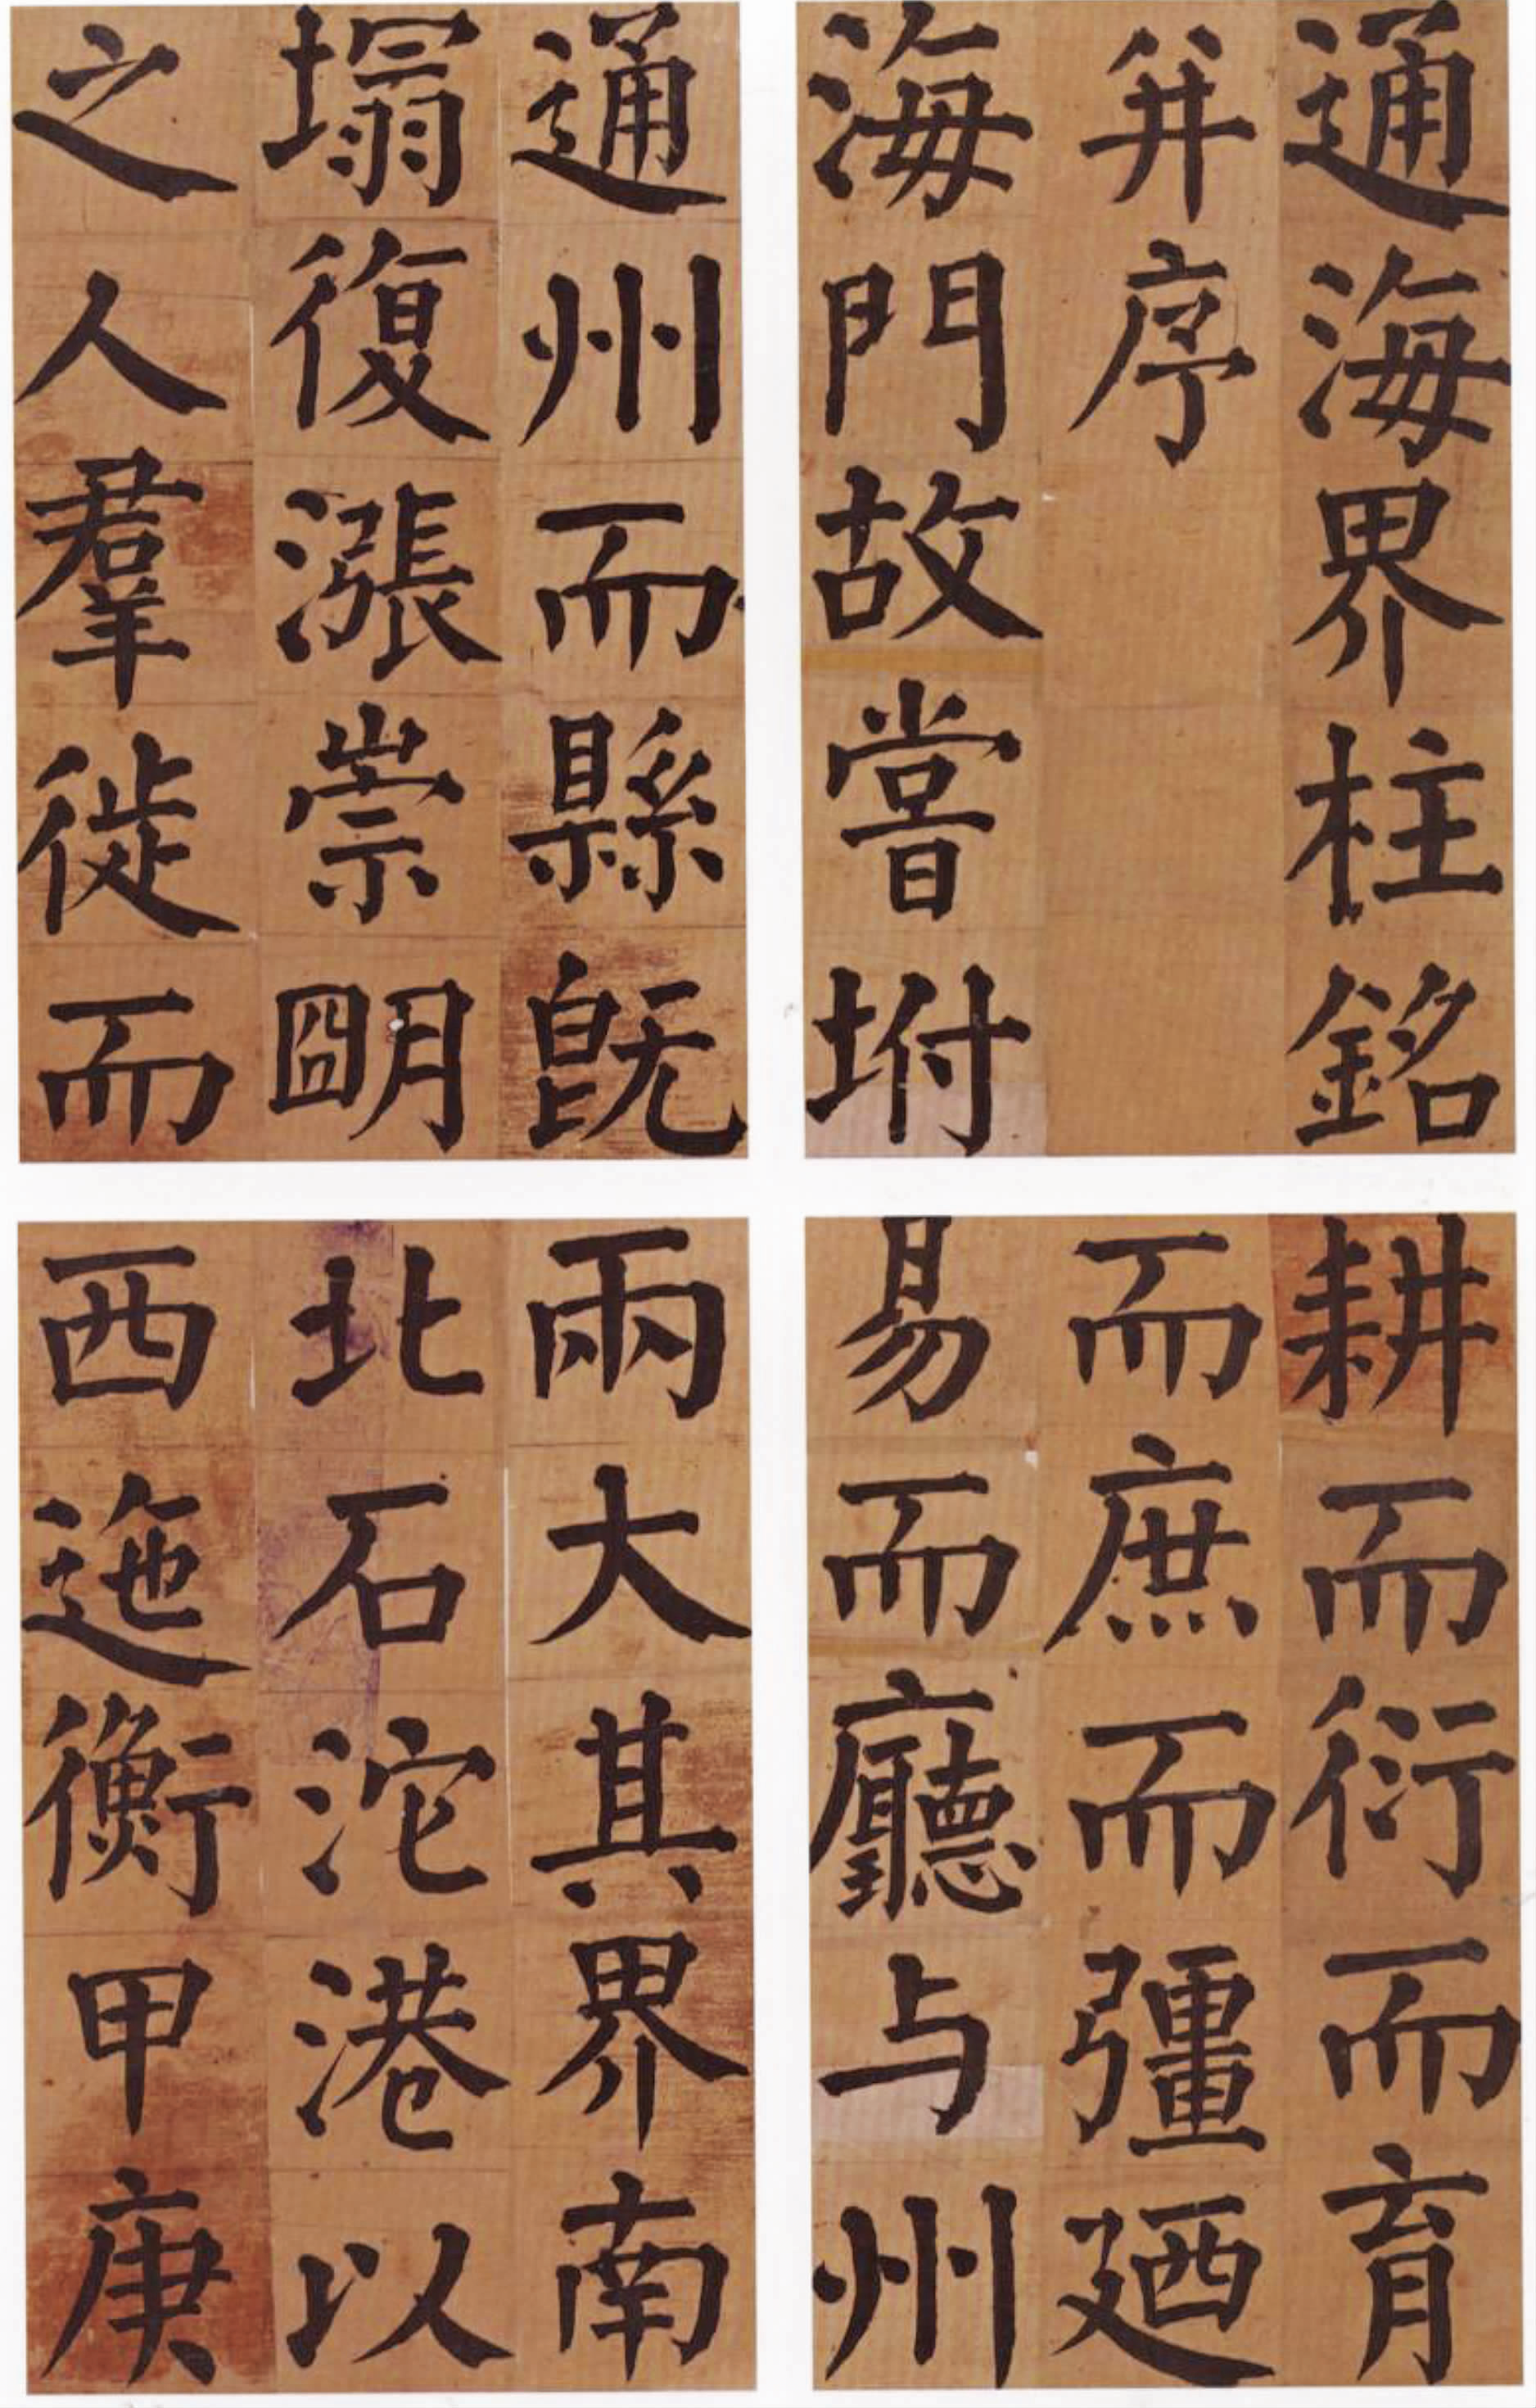 通海界柱銘
并序
海門故嘗坿
通州而縣旣
塌復漲崇朙
之人羣徙而
耕而衍而育
而庶而彊廼
易而廳与州
兩大其界南
北石沱港以
西迤衡甲庚